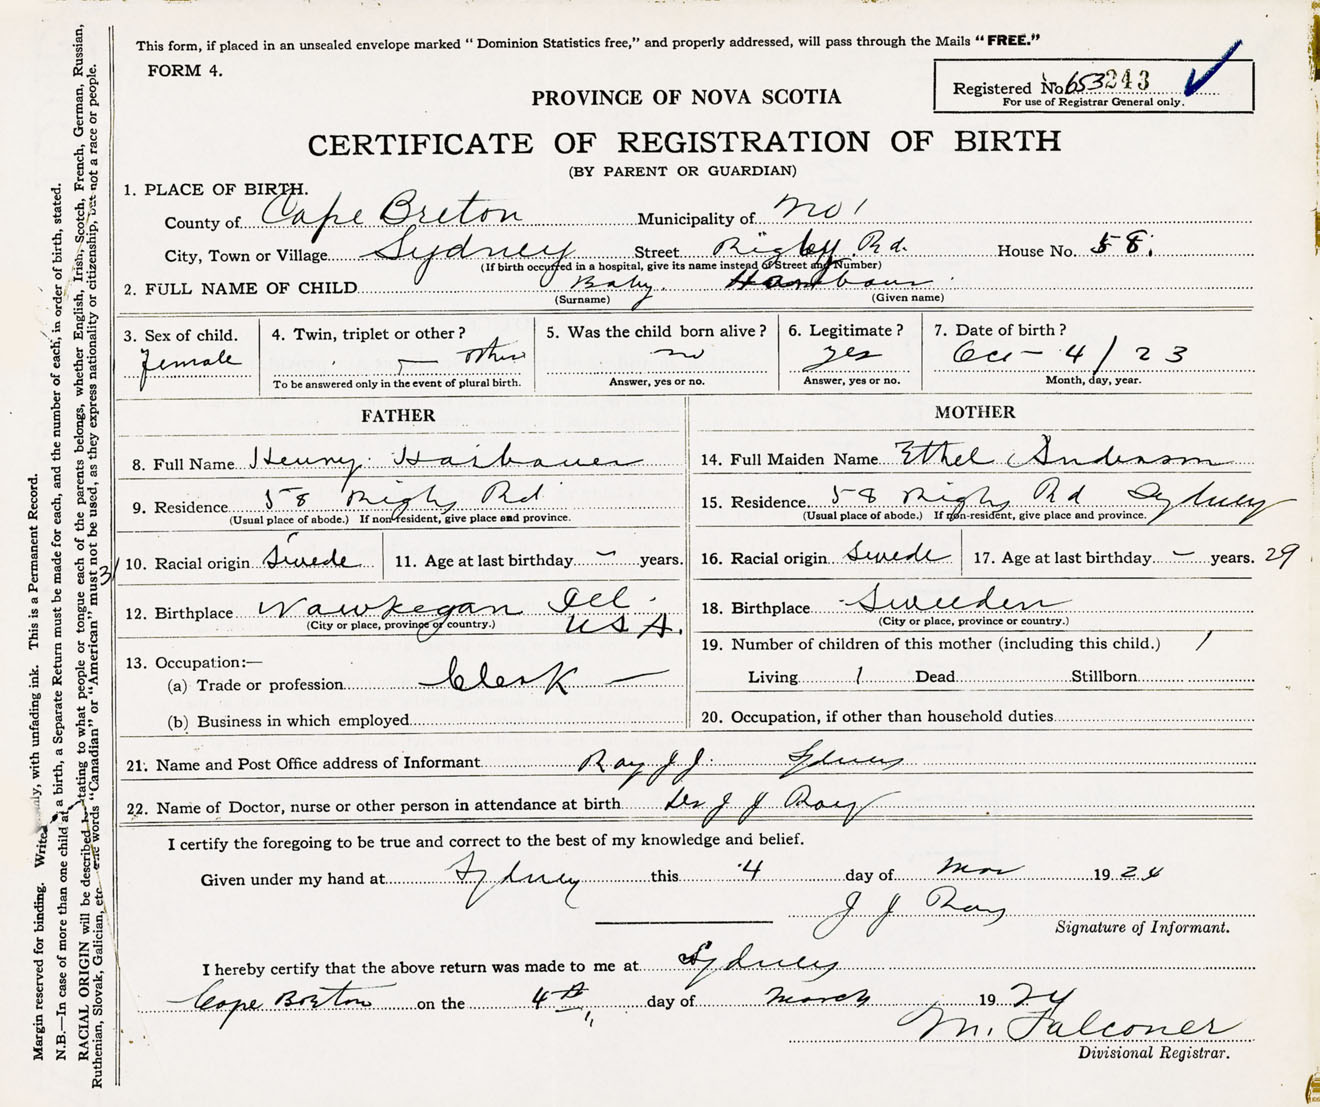 This form, if placed in an unsealed envelope marked " Dominion Statistics free," and properly addressed, will pass through the Mails "FREE."
FORM 4.
Registered No. 653243
For use of Registrar General only.
PROVINCE OF NOVA SCOTIA
CERTIFICATE OF REGISTRATION OF BIRTH
(BY PARENT OR GUARDIAN)
1. PLACE OF BIRTH.
County of Cape Breton Municipality of No 1
City, Town or Village Sydney Street Rigby Rd. House No. 58.
(If birth occurred in a hospital, give its name instead of Street and Number)
2. FULL NAME OF CHILD Baby.
(Surname) (Given name)
3. Sex of child. 4. Twin, triplet or other? 5. Was the child born alive? 6. Legitimate? 7. Date of birth?
Female — other no yes Oct - 4 / 23
To be answered only in the event of plural birth. Answer, yes or no. Answer, yes or no. Month, day, year.
FATHER MOTHER
8. Full Name Henry 14. Full Maiden Name Ethel Anderson
9. Residence 58 Rigby Rd 15. Residence 58 Rigby Rd Sydney
(Usual place of abode.) If non-resident, give place and province. (Usual place of abode.) If non-resident, give place and province.
31 10. Racial origin Swede 11. Age at last birthday — years. 16. Racial origin Swede 17. Age at last birthday — years. 29
12. Birthplace Wawkegan Ill. U S A. 18. Birthplace Sweeden
(City or place, province or country.) (City or place, province or country.)
13. Occupation:— 19. Number of children of this mother (including this child.) 1
(a) Trade or profession Clerk — Living 1 Dead Stillborn
(b) Business in which employed 20. Occupation, if other than household duties
21. Name and Post Office address of Informant Roy J J. Sydney
22. Name of Doctor, nurse or other person in attendance at birth Dr J J Roy
I certify the foregoing to be true and correct to the best of my knowledge and belief.
Given under my hand at Sydney this 4 day of Mar 1924
J J Roy
Signature of Informant.
I hereby certify that the above return was made to me at Sydney
Cape Breton on the 4th day of March 1924
M. Falconer
Divisional Registrar.
Margin reserved for binding. Write with unfading ink. This is a Permanent Record.
N.B.—In case of more than one child at a birth, a Separate Return must be made for each, and the number of each, in order of birth, stated.
RACIAL ORIGIN will be described by stating to what people or tongue each of the parents belongs, whether English, Irish, Scotch, French, German, Russian,
Ruthenian, Slovak, Galician, etc. words "Canadian" or "American" must not be used, as they express nationality or citizenship, but not a race or people.